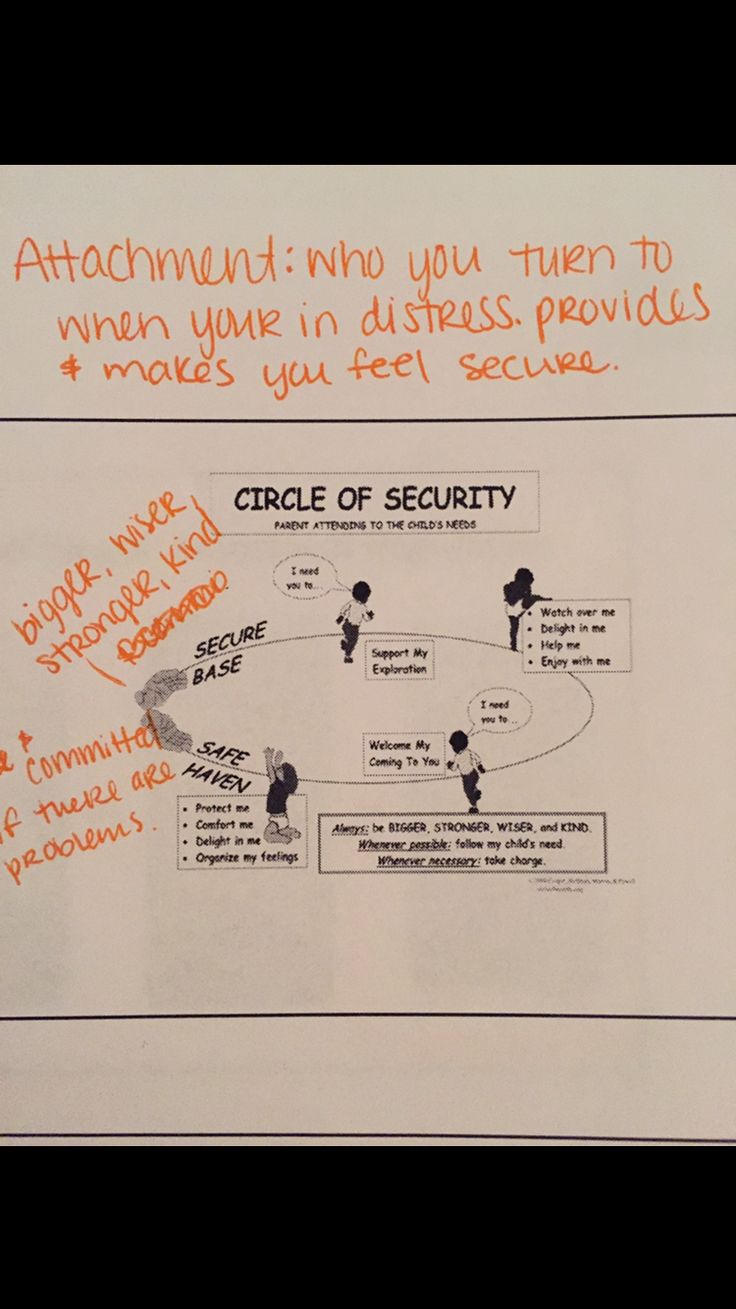 Attachment: who you turn to
when your in distress. provides
& makes you feel secure.
CIRCLE OF SECURITY
PARENT ATTENDING TO THE CHILD'S NEEDS
bigger, wiser,
stronger, kind
I need
you to...
SECURE
BASE
Support My
Exploration
• Watch over me
• Delight in me
• Help me
• Enjoy with me
I need
you to...
Welcome My
Coming To You
SAFE
HAVEN
&
committed
if there are
problems.
• Protect me
• Comfort me
• Delight in me
• Organize my feelings
Always: be BIGGER, STRONGER, WISER, and KIND.
Whenever possible: follow my child's need.
Whenever necessary: take charge.